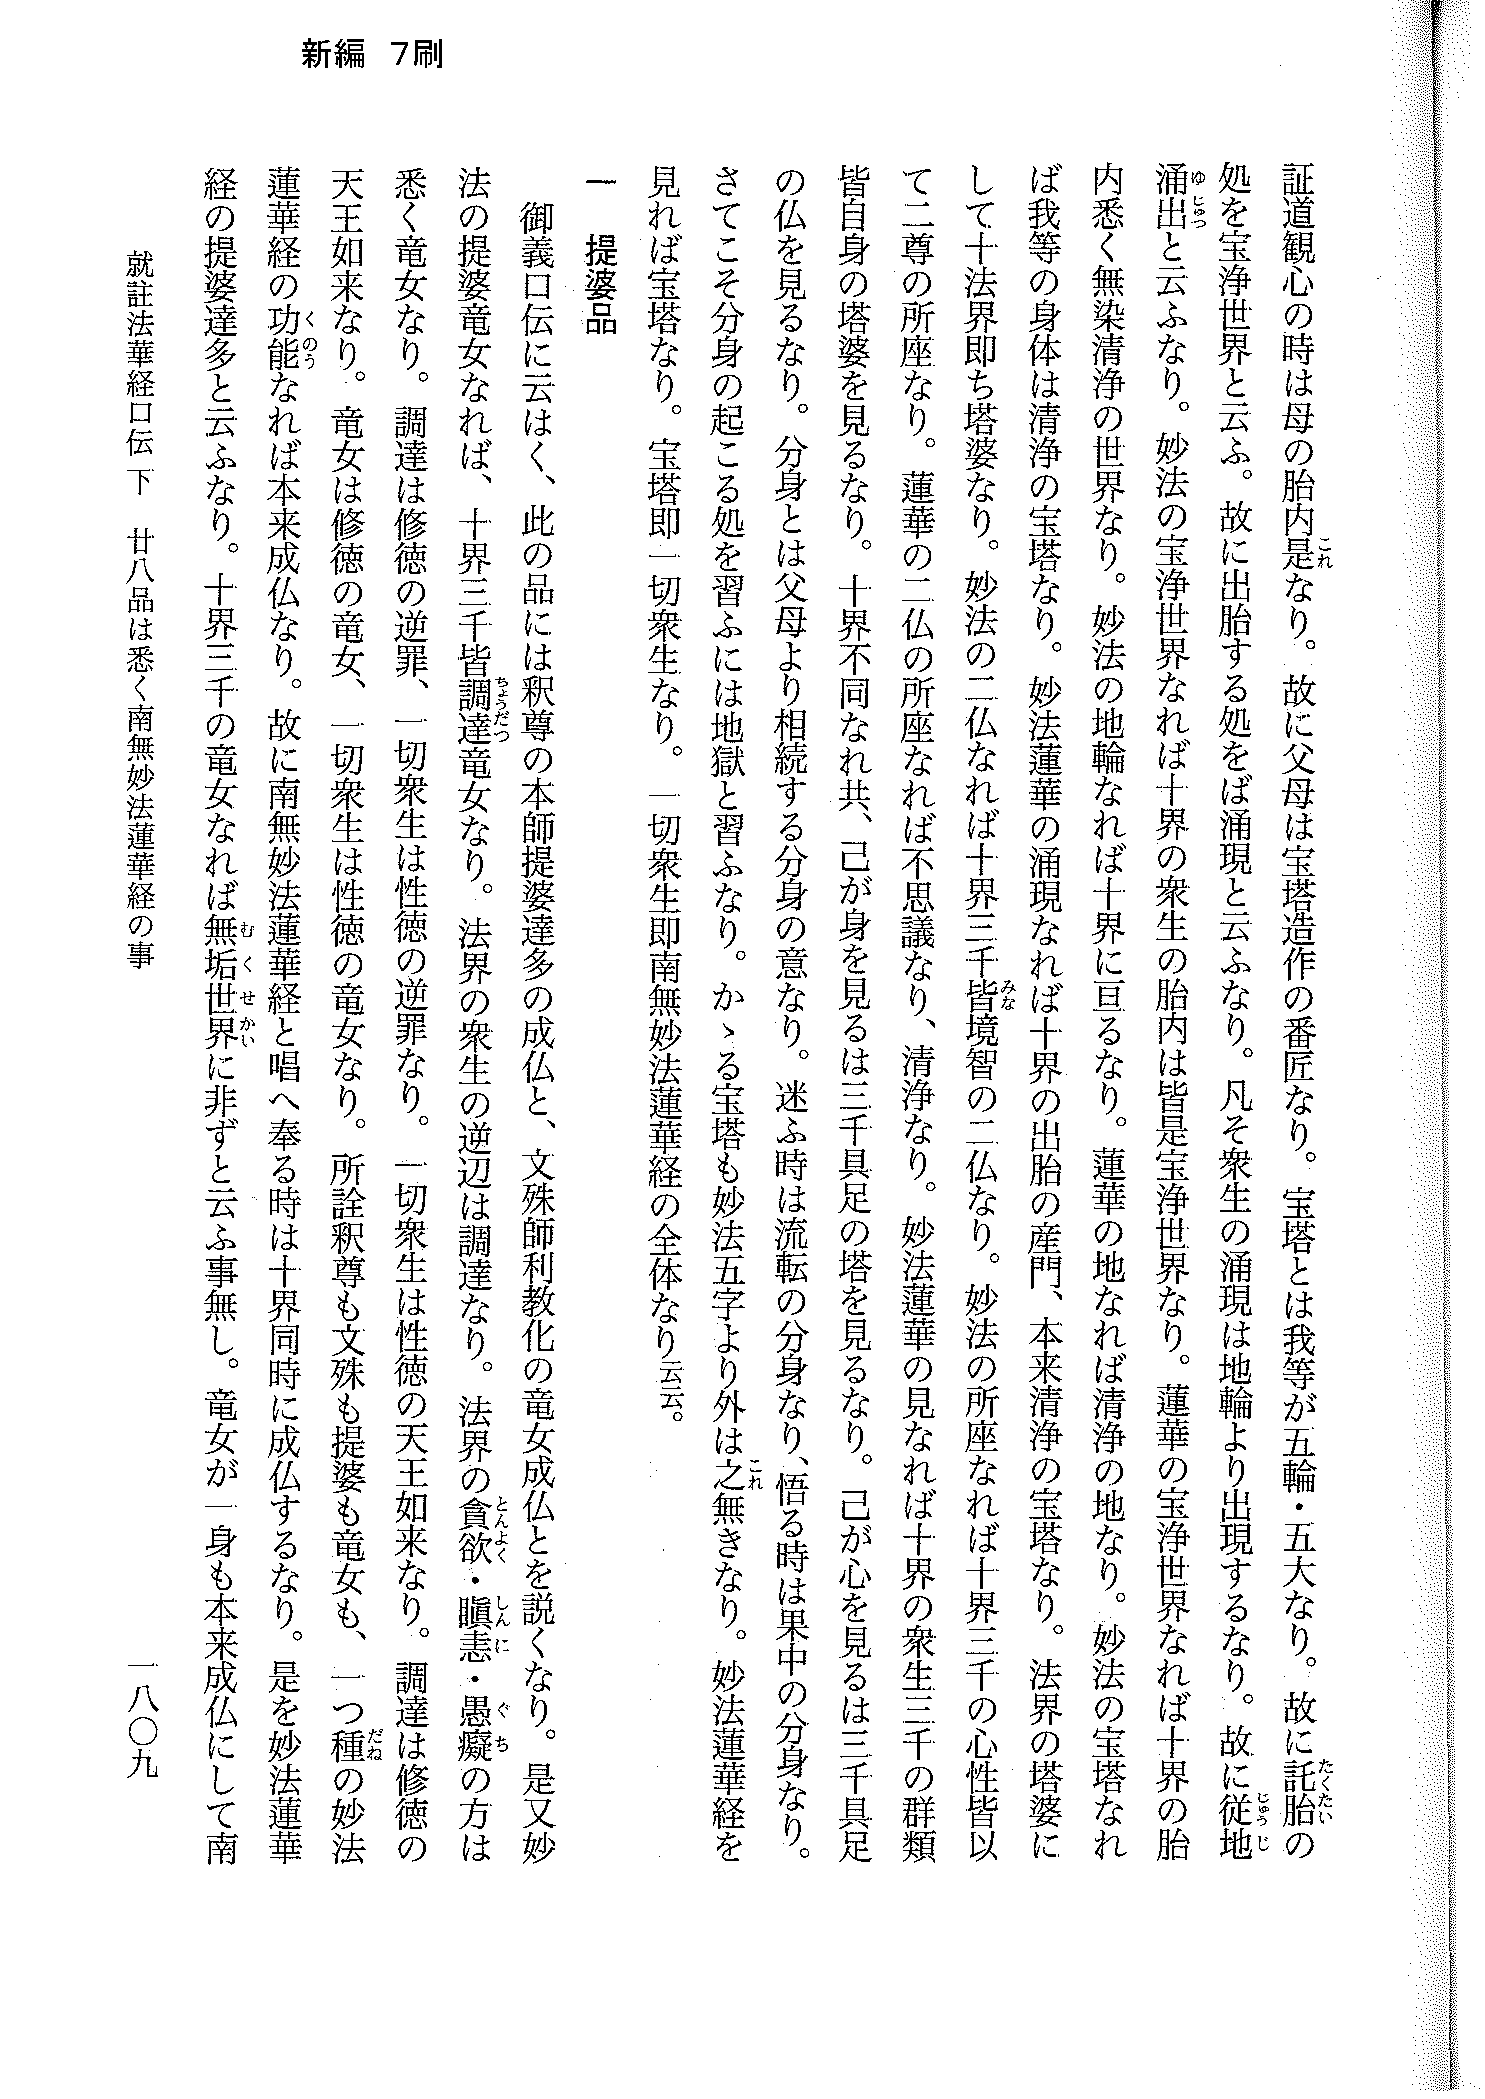 新編 7刷
証道観心の時は母の胎内是なり。故に父母は宝塔造作の番匠なり。宝塔とは我等が五輪・五大なり。故に託胎の
処を宝浄世界と云ふ。故に出胎する処をば涌現と云ふなり。凡そ衆生の涌現は地輪より出現するなり。故に従地
涌出と云ふなり。妙法の宝浄世界なれば十界の衆生の胎内は皆是宝浄世界なり。蓮華の宝浄世界なれば十界の胎
内悉く無染清浄の世界なり。妙法の地輪なれば十界に亘るなり。蓮華の地なれば清浄の地なり。妙法の宝塔なれ
ば我等の身体は清浄の宝塔なり。妙法蓮華の涌現なれば十界の出胎の産門、本来清浄の宝塔なり。法界の塔婆に
して十法界即ち塔婆なり。妙法の二仏なれば十界三千皆境智の二仏なり。妙法の所座なれば十界三千の心性皆以
て二尊の所座なり。蓮華の二仏の所座なれば不思議なり、清浄なり。妙法蓮華の見なれば十界の衆生三千の群類
皆自身の塔婆を見るなり。十界不同なれ共、己が身を見るは三千具足の塔を見るなり。己が心を見るは三千具足
の仏を見るなり。分身とは父母より相続する分身の意なり。迷ふ時は流転の分身なり、悟る時は果中の分身なり。
さてこそ分身の起こる処を習ふには地獄と習ふなり。かゝる宝塔も妙法五字より外は之無きなり。妙法蓮華経を
見れば宝塔なり。宝塔即一切衆生なり。一切衆生即南無妙法蓮華経の全体なり云云。
一 提婆品
御義口伝に云はく、此の品には釈尊の本師提婆達多の成仏と、文殊師利教化の竜女成仏とを説くなり。是又妙
法の提婆竜女なれば、十界三千皆調達竜女なり。法界の衆生の逆辺は調達なり。法界の貪欲・瞋恚・愚癡の方は
悉く竜女なり。調達は修徳の逆罪、一切衆生は性徳の逆罪なり。一切衆生は性徳の天王如来なり。調達は修徳の
天王如来なり。竜女は修徳の竜女、一切衆生は性徳の竜女なり。所詮釈尊も文殊も提婆も竜女も、一つ種の妙法
蓮華経の功能なれば本来成仏なり。故に南無妙法蓮華経と唱へ奉る時は十界同時に成仏するなり。是を妙法蓮華
経の提婆達多と云ふなり。十界三千の竜女なれば無垢世界に非ずと云ふ事無し。竜女が一身も本来成仏にして南
就註法華経口伝 下 廿八品は悉く南無妙法蓮華経の事
一八〇九